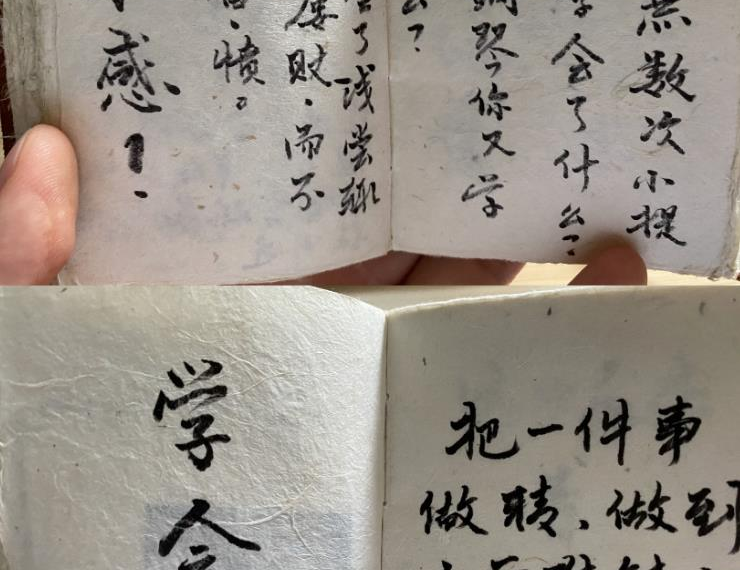 無数次小提
学会了什么？
鋼琴你又学
么？
会了浅尝辄
屡败．而不
．愤。
感！
！．
学会
把一件事
做精、做到